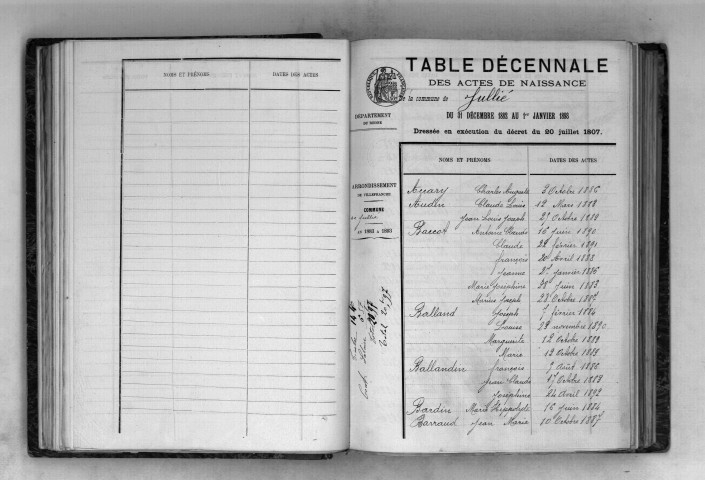 NOMS ET PRÉNOMS DATES DES ACTES
TABLE DÉCENNALE
DES ACTES DE NAISSANCE
De la commune de Jullié
DU 31 DÉCEMBRE 1882 AU 1er JANVIER 1893
Dressée en exécution du décret du 20 juillet 1807.
DÉPARTEMENT
DU RHÔNE
ARRONDISSEMENT
DE VILLEFRANCHE
COMMUNE
de Jullié
NOMS ET PRÉNOMS DATES DES ACTES
Charles Auguste 3 Octobre 1886
Audin Claude Louis 12 Mars
Jean Louis Joseph Octobre
Baccot Antoine Claude 16 Juin 1890
Claude 22 février 1891
françois 20 Avril 1888
Jeanne janvier 1886
Marie Joséphine Juin 1883
Marius Joseph Octobre
Balland Joseph 7 février 1886
Louise novembre 1890
Marguerite 12 Octobre
Marie 12 Octobre
Ballandin françois Août
Jean Claude 17 Octobre
Joséphine 24 Avril 1892
Bardin Marie Hippolyte 16 Juin 1884
Barraud Jean Marie 10 Octobre 1887
Total